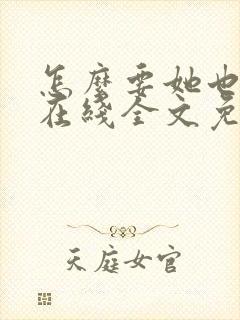 怎麼要她也
在綫全文免
天庭女官